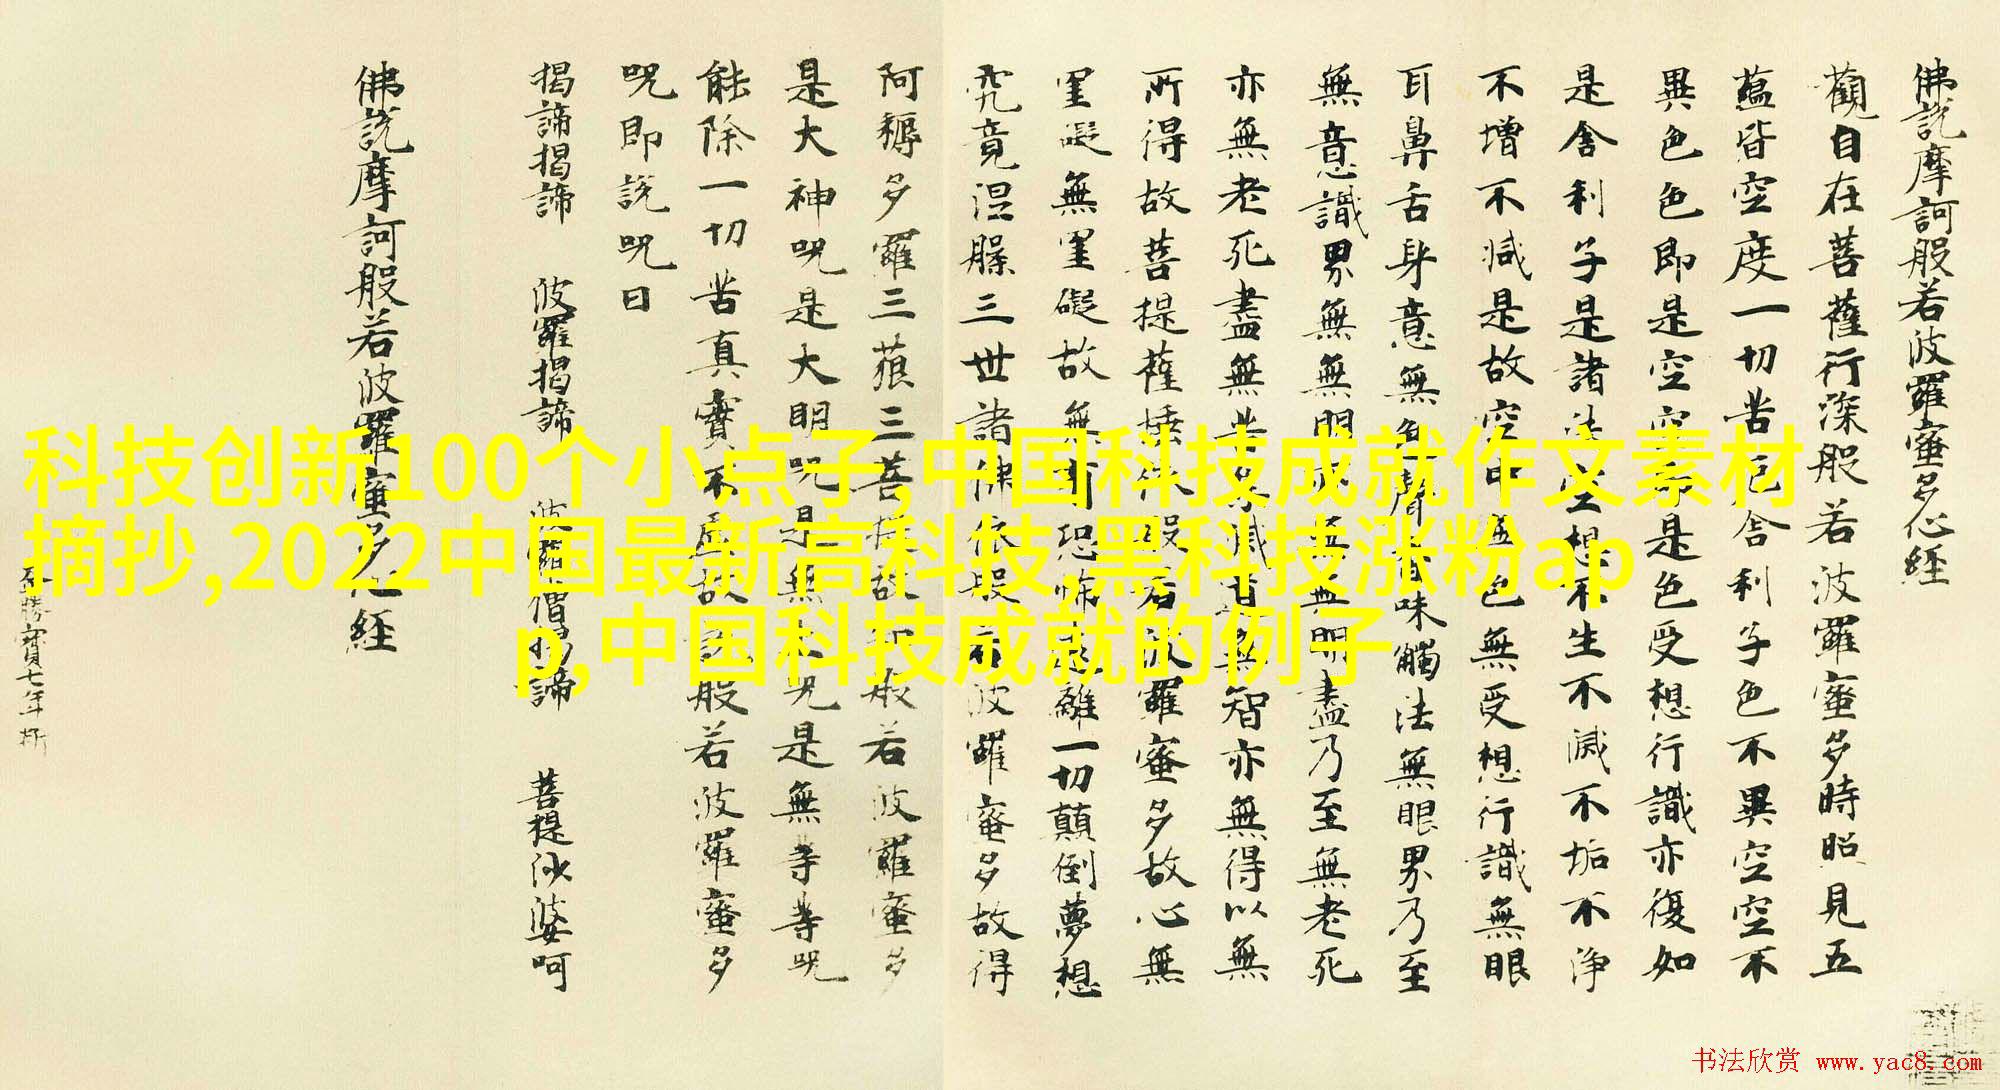 佛說摩訶般若波羅蜜多心経
觀自在菩薩行深般若波羅蜜多時照見五
蘊皆空度一切苦厄舍利子色不異空空不
異色色即是空空即是色受想行識亦復如
是舍利子是諸法空相不生不滅不垢不淨
不增不減是故空中無色無受想行識無眼
耳鼻舌身意無色聲香味觸法無眼界乃至
無意識界無無明亦無無明盡乃至無老死
亦無老死盡無苦集滅道無智亦無得以無
所得故菩提薩埵依般若波羅蜜多故心無
罣礙無罣礙故無有恐怖遠離一切顛倒夢想
究竟涅槃三世諸佛依般若波羅蜜多故得
阿耨多羅三藐三菩提故知般若波羅蜜多
是大神咒是大明咒是無上咒是無等等咒
能除一切苦真實不虛故說般若波羅蜜多
咒即說咒曰
揭諦揭諦 波羅揭諦 波羅僧揭諦 菩提沙婆呵
佛說摩訶般若波羅蜜多心経
科技创新100个小点子,中国科技成就作文素材
摘抄,2022中国最新高科技,黑科技涨粉ap
p,中国科技成就的例子
书法欣赏 www.yac8.com